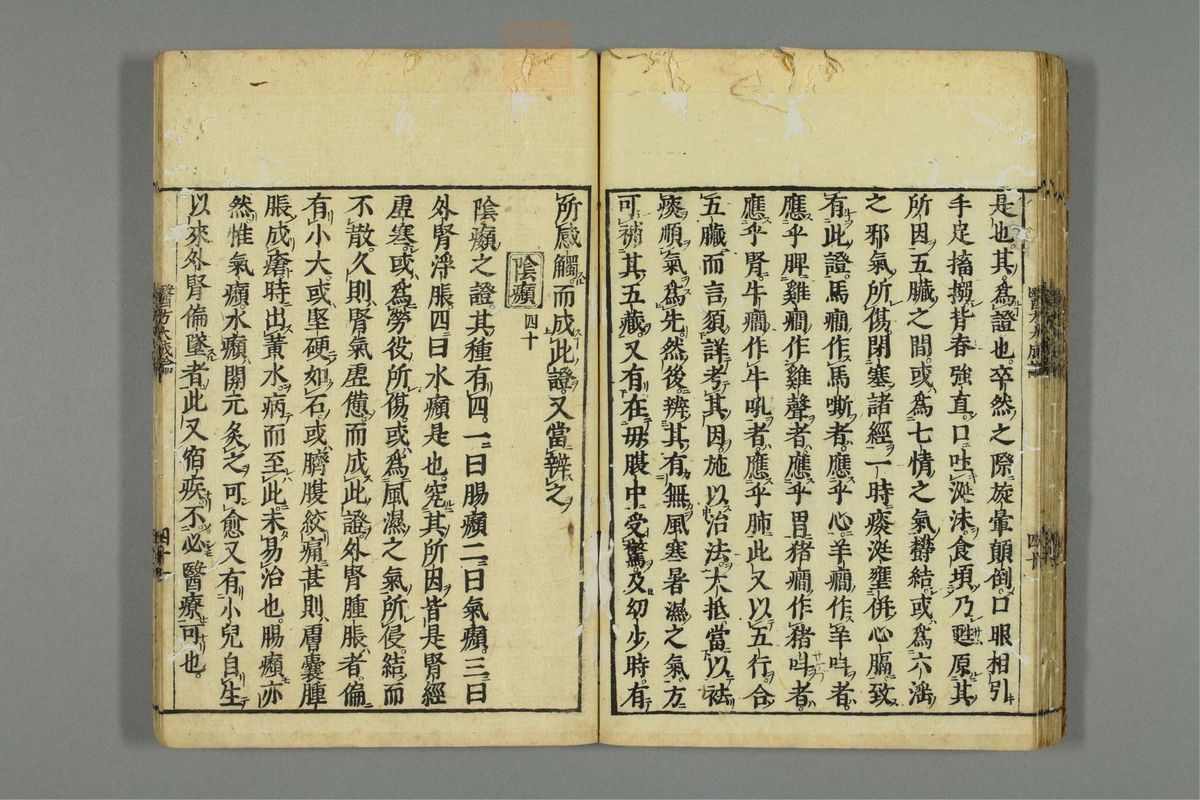 是也其為證也卒然之際旋暈顛倒口眼相引
手足搐搦背脊強直口吐涎沫食頃乃甦原其
所因五臟之間或為七情之氣欝結或為六淫
之邪氣所傷閉塞諸經一時痰涎壅併心膈致
有此證馬癎作馬嘶者應乎心羊癎作羊叫者
應乎脾雞癎作雞聲者應乎胃猪癎作猪叫者
應乎腎牛癎作牛吼者應乎肺此又以五行合
五臟而言須詳考其因施以治法大抵當以祛
痰順氣為先然後辨其有無風寒暑濕之氣方
可補其五藏又有在母腹中受驚及幼少時有
所感觸而成此證又當辨之
陰㿗 四十
陰㿗之證其種有四一曰腸㿗二曰氣㿗三曰
外腎浮脹四曰水㿗是也究其所因皆是腎經
虛寒或為勞役所傷或為風濕之氣所侵結而
不散久則腎氣虛憊而成此證外腎腫脹者偏
有小大或堅硬如石或臍腹絞痛甚則膚囊腫
脹成瘡時出黃水病而至此未易治也腸㿗亦
然惟氣㿗水㿗開元灸之可愈又有小兒自生
以來外腎偏墜者此又宿疾不必醫療可也